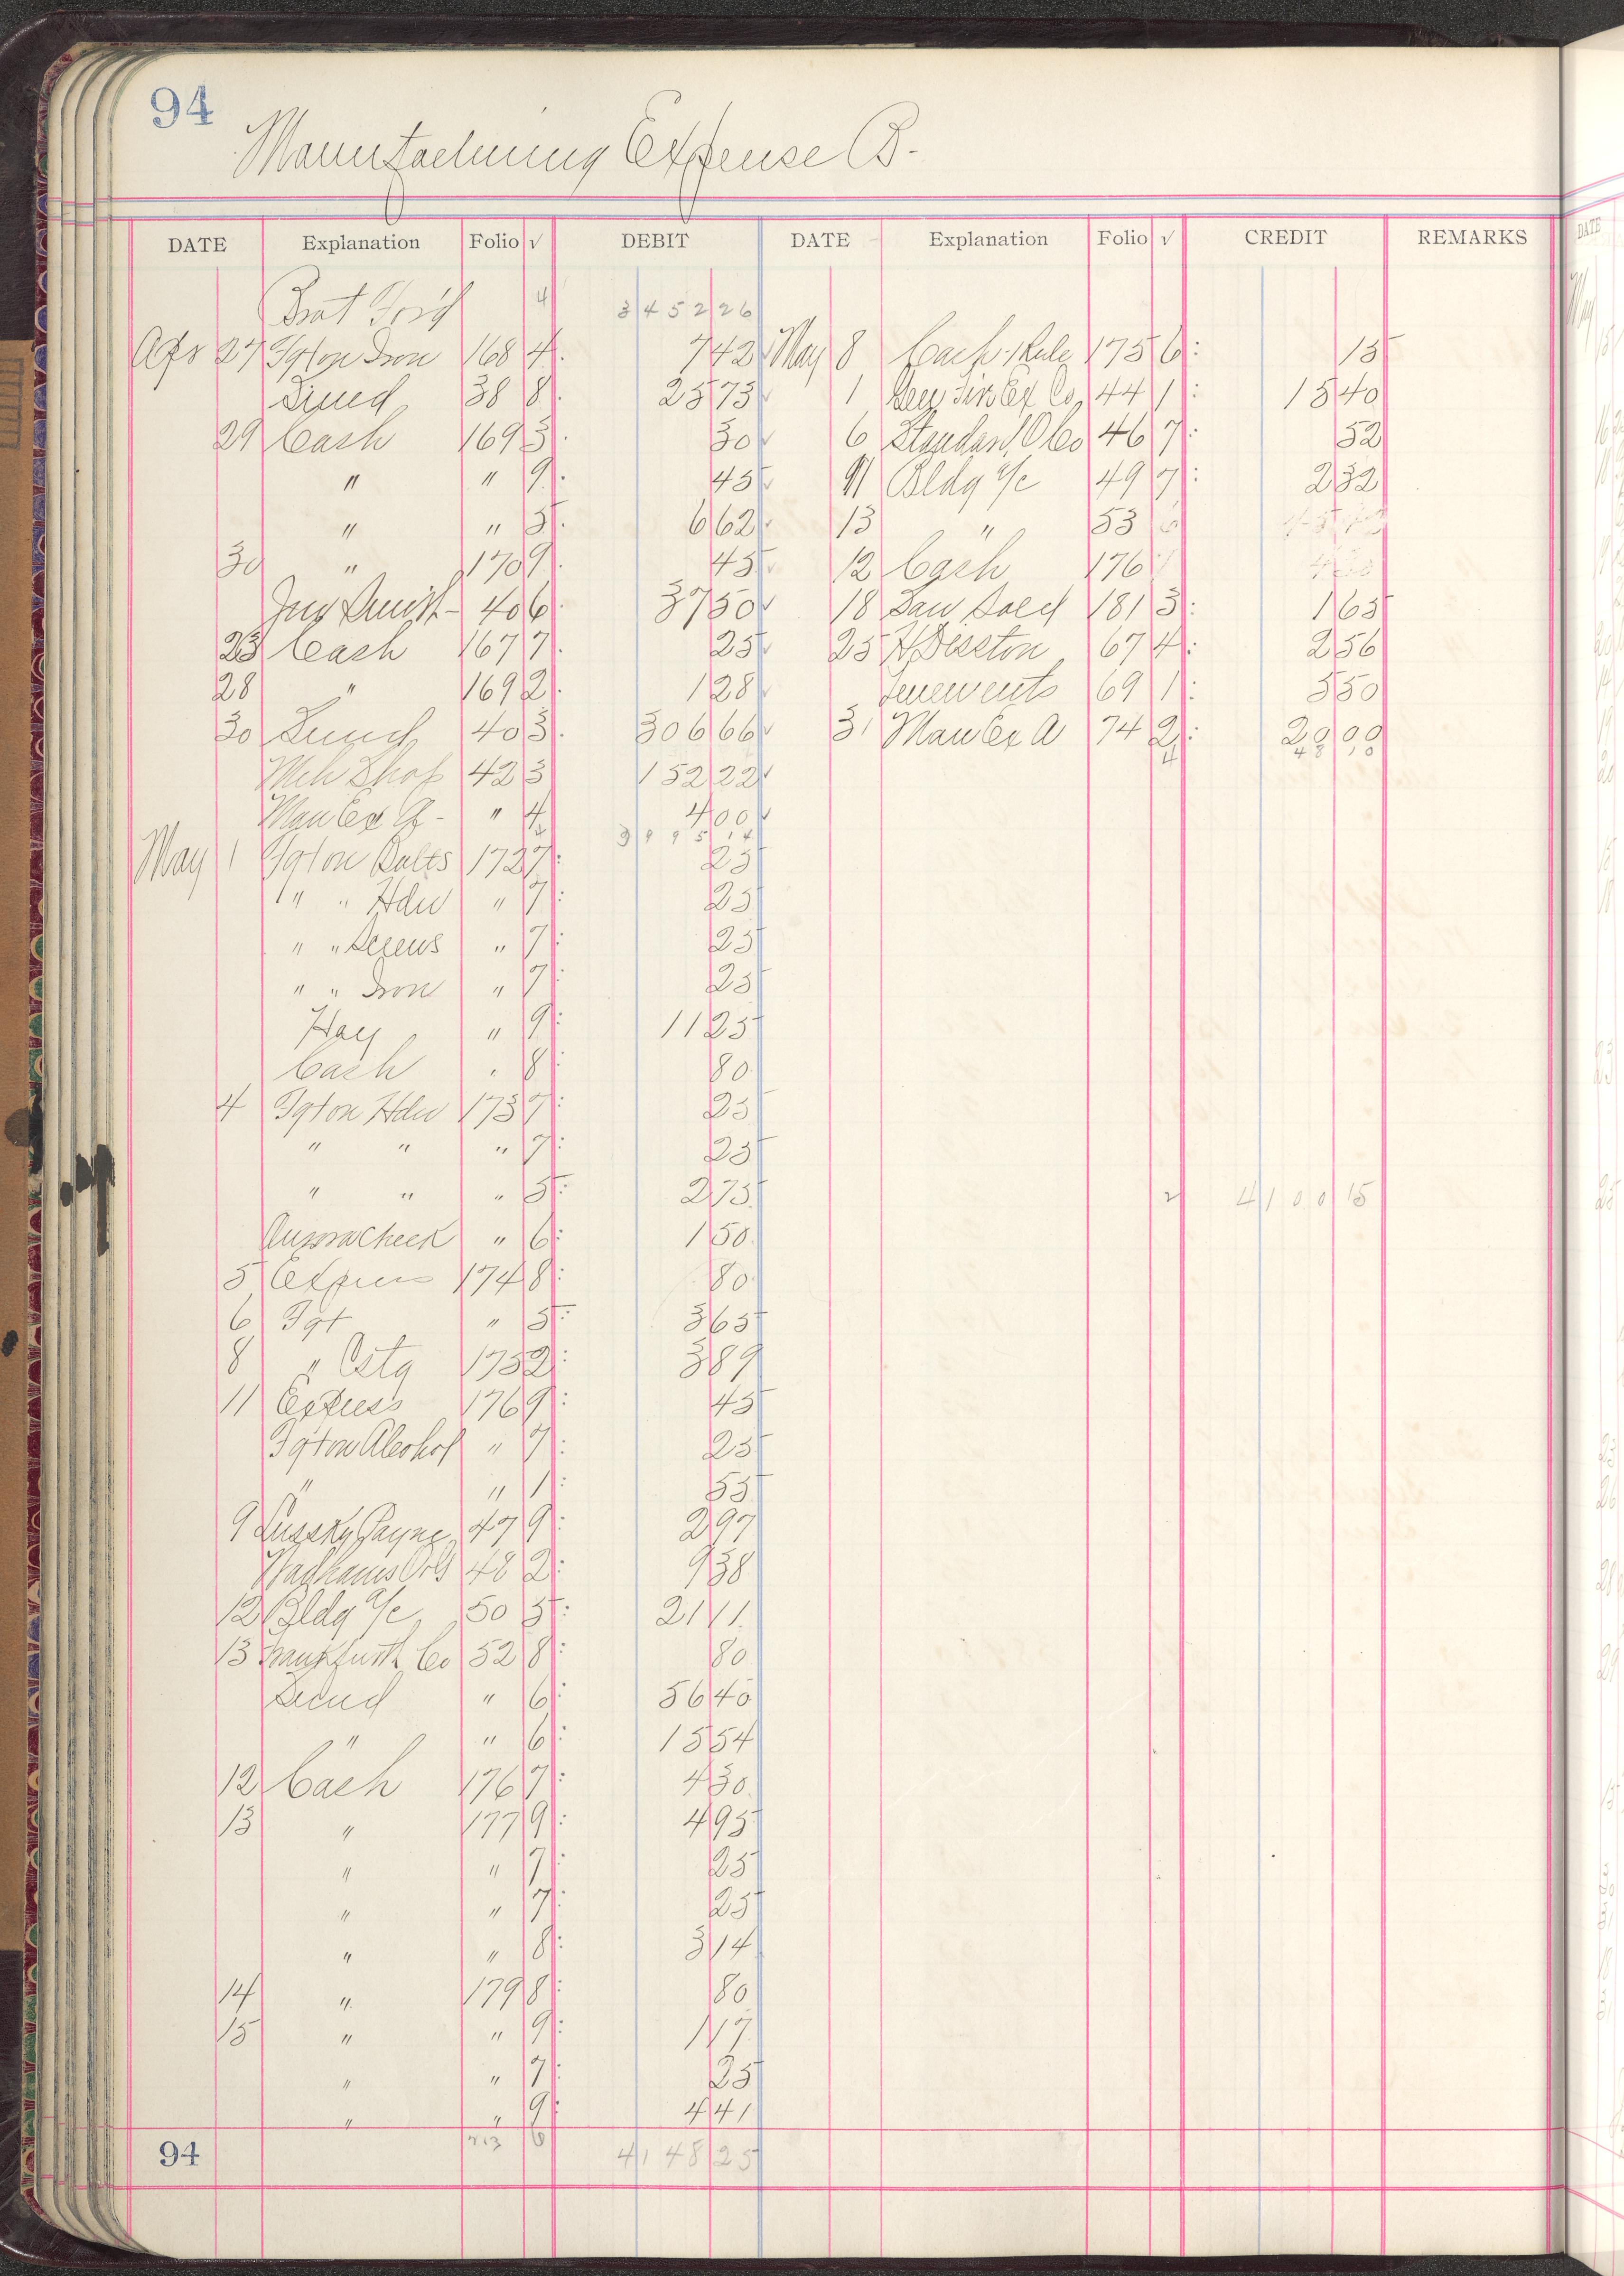 94
Manufacturing Expense B-
DATE Explanation Folio √ DEBIT DATE Explanation Folio √ CREDIT REMARKS
Brot For'd 4 3452 26
Apr 27 Fgt on Iron 168 4 7 42 May 8 Cash Rule 175 6 15
Sund 38 8 25 73 1 Gen Fire Ex Co 44 1 15 40
29 Cash 169 3 30 6 Standard O Co 46 7 52
" " 9 45 11 Bldg a/c 49 7 2 32
" " 5 6 62 13 " 53
30 " 170 9 45 12 Cash 176
Jny 40 6 37 50 18 Saw Sold 181 3 1 65
23 Cash 167 7 25 25 H Disston 67 4 2 56
28 " 169 2 1 28 Tenements 69 1 5 50
30 Sund 40 3 306 66 31 Man Ex A 74 2 20 00
4 48 10
Mch Shop 42 3 152 22
Man Ex A- " 4 4 00
3995 14
May 1 Fgt on Bolts 172 7 25
" " Hdw " 7 25
" " Screws " 7 25
" " Iron " 7 25
Hay " 9 11 25
Cash " 8 80
4 Fgt on Hdw 173 7 25
" " " 7 25
" " " 5 2 75 2 4100 15
check " 6 1 50
5 Express 174 8 80
6 Fgt " 5 3 65
8 " Cstg 175 2 3 89
11 Express 176 9 45
Fgt on Alcohol " 7 25
" " 1 55
9 Payne 47 9 2 97
Wadhams Oil 48 2 9 38
12 Bldg a/c 50 5 21 11
13 Frankfurth Co 52 8 80
Sund " 6 56 40
" " 6 15 54
12 Cash 176 7 4 30
13 " 177 9 4 95
" " 7 25
" " 7 25
" " 8 3 14
14 " 179 8 80
15 " " 9 1 17
" " 7 25
" " 9 4 41
94 213 6 4148 25